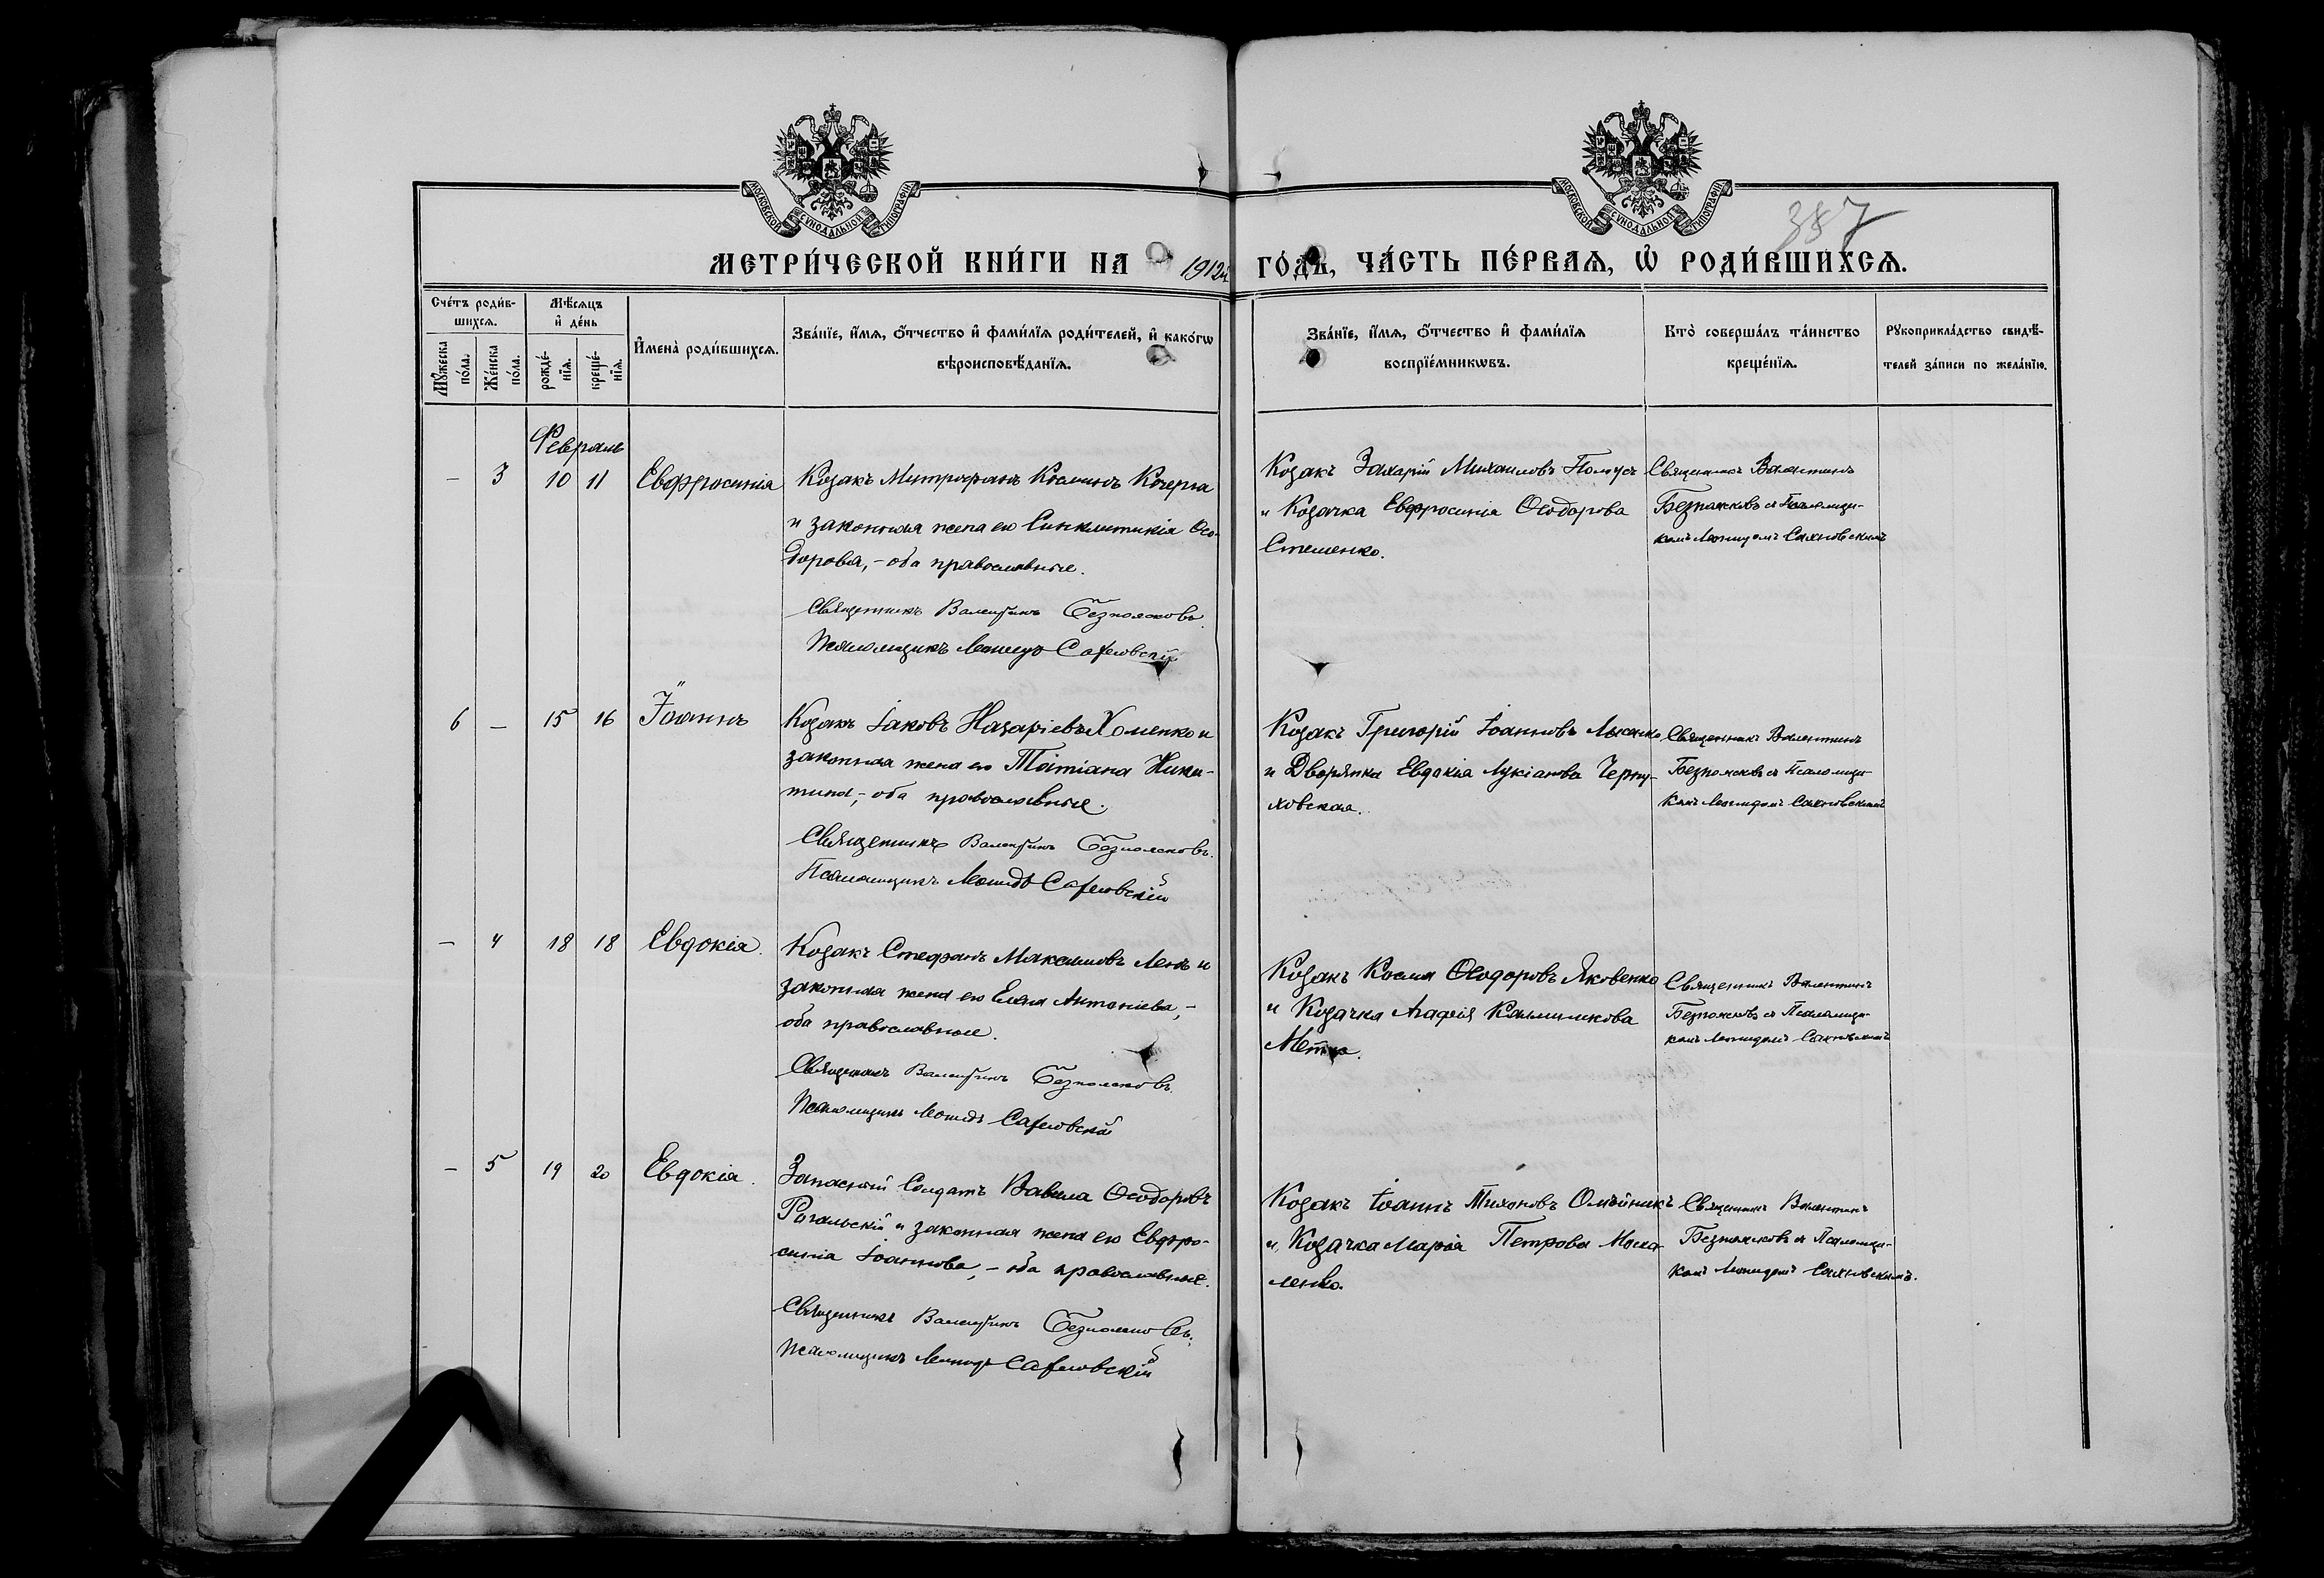 МОСКОВСКОЙ СѴНОДАЛЬНОЙ ТИПОГРАФІИ
МОСКОВСКОЙ СѴНОДАЛЬНОЙ ТИПОГРАФІИ
387
МЕТРИ́ЧЕСКОЙ КНИ́ГИ НА 1912 ГО́ДЪ, ЧА́СТЬ ПЕ́РВАѦ, Ѡ҆ РОДИ́ВШИХСѦ.
Сче́тъ роди́в-
шихсѧ.
Мꙋ́жеска по́ла.
Же́нска по́ла.
Мѣ́сѧцъ
и҆ де́нь
рожде́-
нїѧ.
креще́-
нїѧ.
И҆мена̀ роди́вшихсѧ.
Зва́нїе, и҆́мѧ, ѻ҆́тчество и҆ фами́лїѧ роди́телей, и҆ како́гѡ
вѣроисповѣ́данїѧ.
Зва́нїе, и҆́мѧ, ѻ҆́тчество и҆ фами́лїѧ
воспрїе́мникѡвъ.
Кто̀ соверша́лъ та́инство
креще́нїѧ.
Рꙋкоприкла́дство свидѣ́-
телей за́писи по жела́нїю.
Февраль
— 3 10 11 Евфросинія
Козакъ Митрофанъ Косминъ Кочерга
и законная жена его Синклитикія Ѳео-
дорова, – оба православные.
Священникъ Валентинъ Безпоясковъ.
Псаломщикъ Леонидъ Сахновскій
Козакъ Захарій Михаиловъ
и Козачка Евфросинія Ѳеодорова
Стешенко.
Священникъ Валентинъ
Безпоясковъ съ Псаломщи-
комъ Леонидомъ Сахновскимъ
6 — 15 16 Іоаннъ
Козакъ Іаковъ Назаріевъ Хоменко и
законная жена его Татіана Ники-
тина, – оба православные.
Священникъ Валентинъ Безпоясковъ.
Псаломщикъ Леонидъ Сахновскій
Козакъ Григорій Іоанновъ Лысенко
и Дворянка Евдокія Лукіанова Черну-
ховская.
Священникъ Валентинъ
Безпоясковъ съ Псаломщи-
комъ Леонидомъ Сахновскимъ
— 4 18 18 Евдокія.
Козакъ Стефанъ Максимовъ Лень и
законная жена его Елена Антоніева, –
оба православные.
Священникъ Валентинъ Безпоясковъ.
Псаломщикъ Леонидъ Сахновскій
Козакъ Косма Ѳеодоровъ Яковенко
и Козачка Агафія Каллиникова
Священникъ Валентинъ
Безпоясковъ съ Псаломщи-
комъ Леонидомъ Сахновскимъ
— 5 19 20 Евдокія.
Запасный Солдатъ Вавила Ѳеодоровъ
Рогальскій и законная жена его Евфро-
синія Іоаннова, – оба православные.
Священникъ Валентинъ Безпоясковъ.
Псаломщикъ Леонидъ Сахновскій
Козакъ Іоаннъ Тихоновъ Олѣйникъ
и Козачка Марія Петрова Моска-
ленко.
Священникъ Валентинъ
Безпоясковъ съ Псаломщи-
комъ Леонидомъ Сахновскимъ.